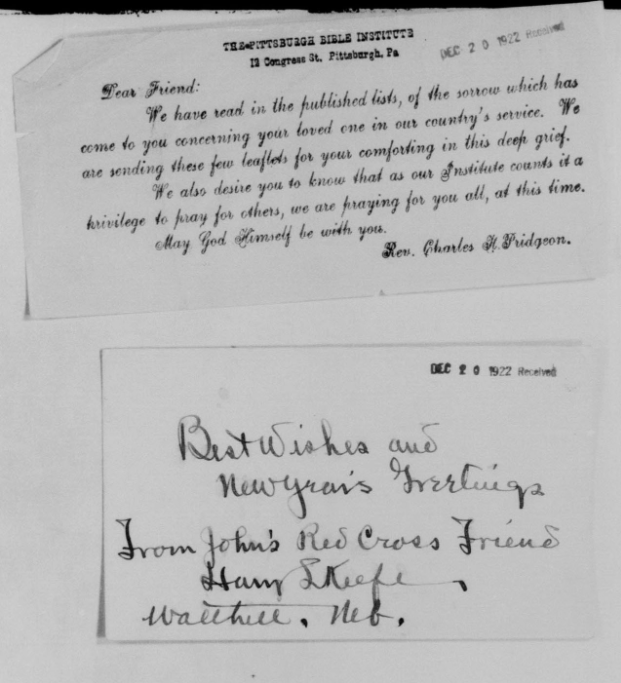 THE PITTSBURGH BIBLE INSTITUTE
12 Congress St., Pittsburgh, Pa
DEC 20 1922 Received
Dear Friend:
We have read in the published lists, of the sorrow which has
come to you concerning your loved one in our country's service. We
are sending these few leaflets for your comforting in this deep grief.
We also desire you to know that as our Institute counts it a
privilege to pray for others, we are praying for you all, at this time.
May God Himself be with you.
Rev. Charles H. Pridgeon.
DEC 20 1922 Received
Best Wishes and
New Year's Greetings
From John's Red Cross Friend
Harry L Keefe,
Walthill, Neb.